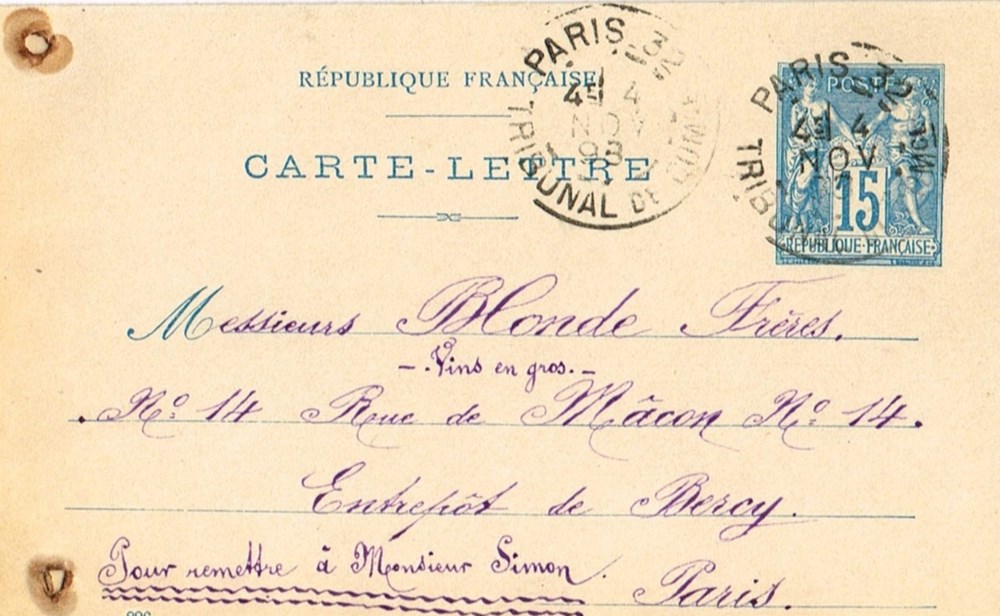 RÉPUBLIQUE FRANÇAISE
CARTE-LETTRE
PARIS
4E 4
NOV
93
TRIBUNAL DE
POSTE
15
REPUBLIQUE FRANÇAISE
PARIS
4E 4
NOV
Messieurs Blonde Frères.
—.Vins en gros.—
. Nº 14 Rue de Mâcon Nº 14.
Entrepôt de Bercy.
Pour remettre à Monsieur Simon.
Paris.